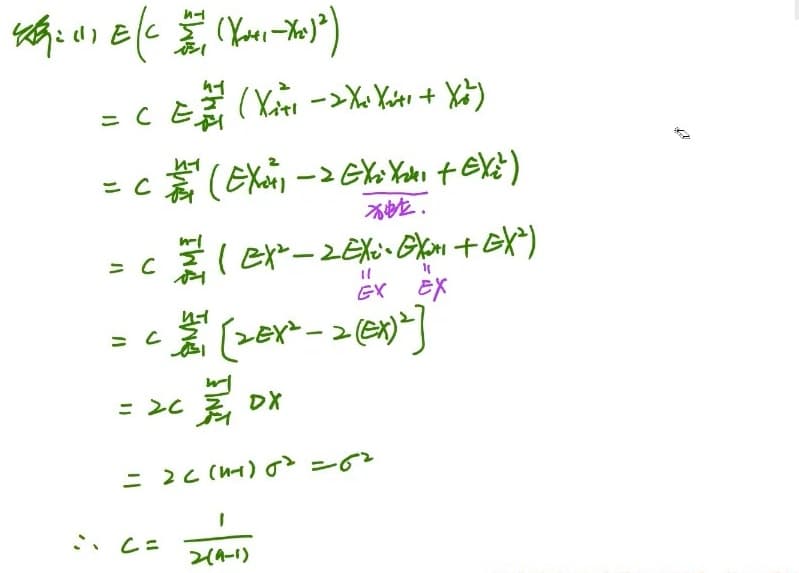 解:(1) E(C ∑_{i=1}^{n-1} (X_{i+1}-X_i)²)
= C E ∑_{i=1}^{n-1} (X_{i+1}² - 2X_i X_{i+1} + X_i²)
= C ∑_{i=1}^{n-1} (EX_{i+1}² - 2EX_i X_{i+1} + EX_i²)
独立.
= C ∑_{i=1}^{n-1} (EX² - 2EX_i·EX_{i+1} + EX²)
= =
EX EX
= C ∑_{i=1}^{n-1} [2EX² - 2(EX)²]
= 2C ∑_{i=1}^{n-1} DX
= 2C(n-1)σ² = σ²
∴ C = 1/(2(n-1))